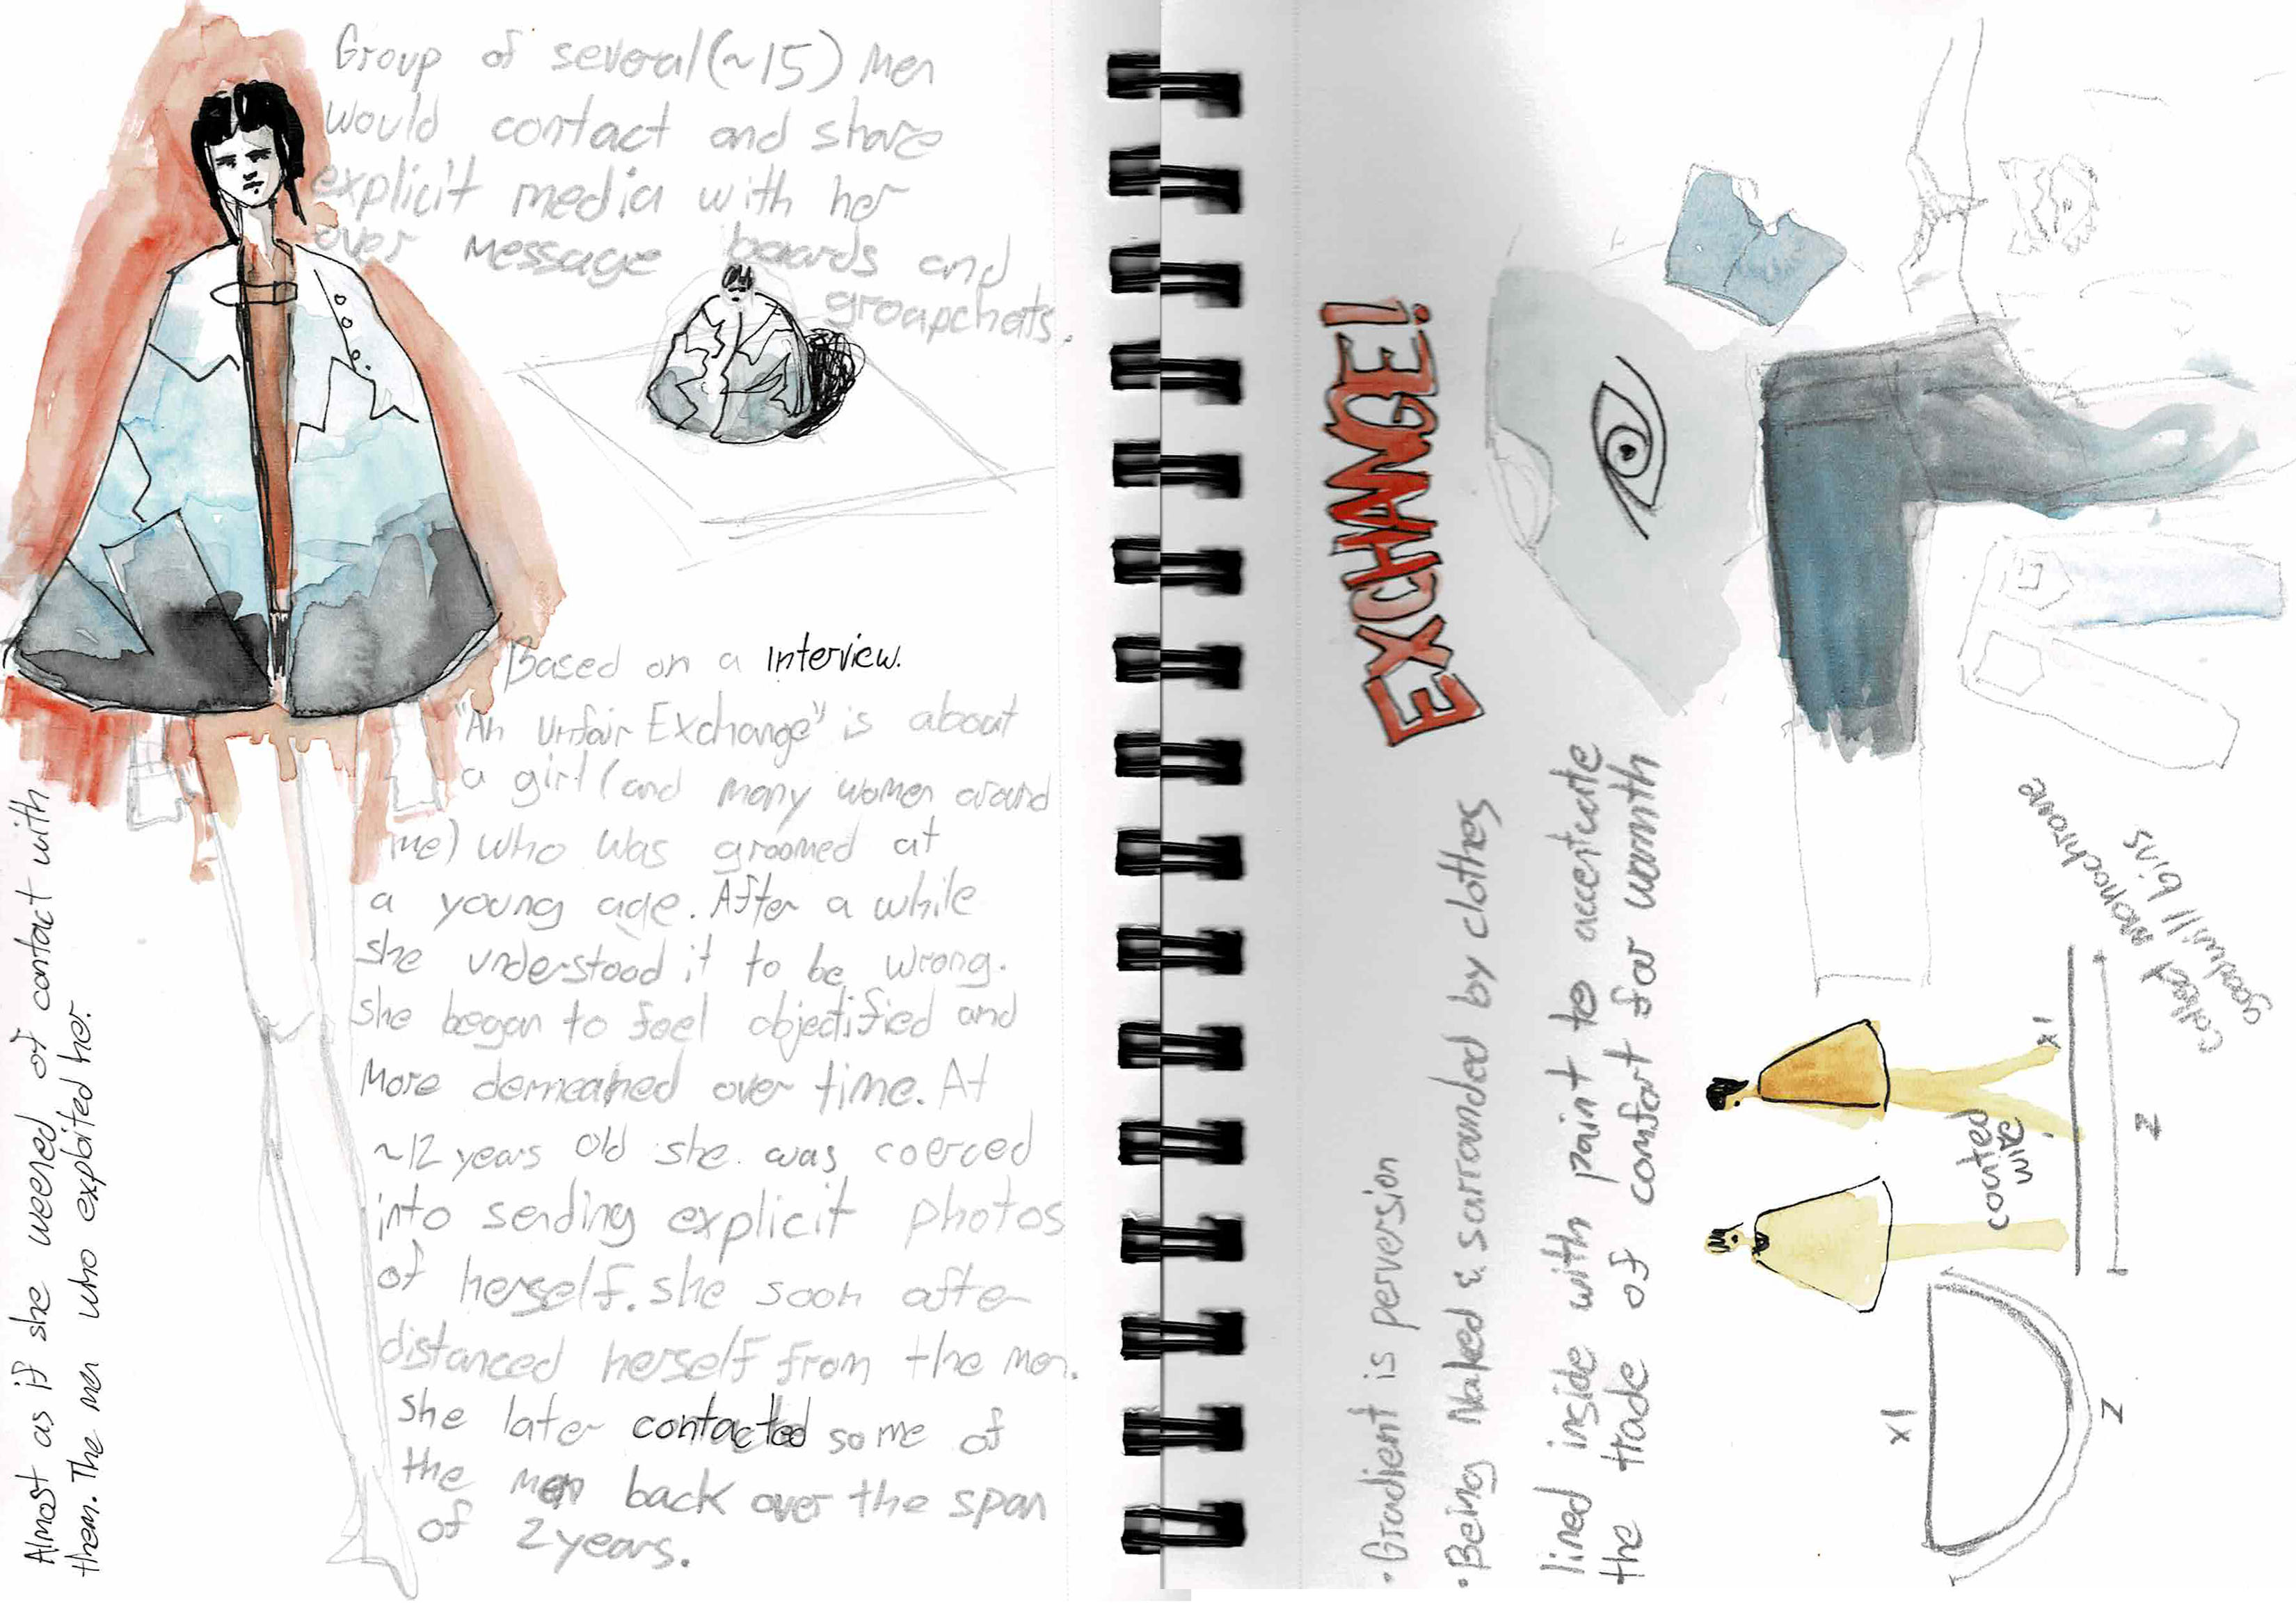 Group of several (~15) men
would contact and share
explicit media with her
over message boards and
groupchats.
Based on a interview.
"An Unfair Exchange" is about
a girl (and many women around
me) who was groomed at
a young age. After a while
she understood it to be wrong.
She began to feel objectified and
more demeaned over time. At
~12 years old she was coerced
into sending explicit photos
of herself. she soon after
distanced herself from the men.
She later contacted some of
the men back over the span
of 2 years.
Almost as if she weened of contact with
them. The men who exploited her.
EXCHANGE!
• Gradient is perversion
• Being Naked & surrounded by clothes
lined inside with paint to accentuate
the trade of comfort for warmth
collect monochrome
goodwill bins
coated
wire
x1
z
x1
z